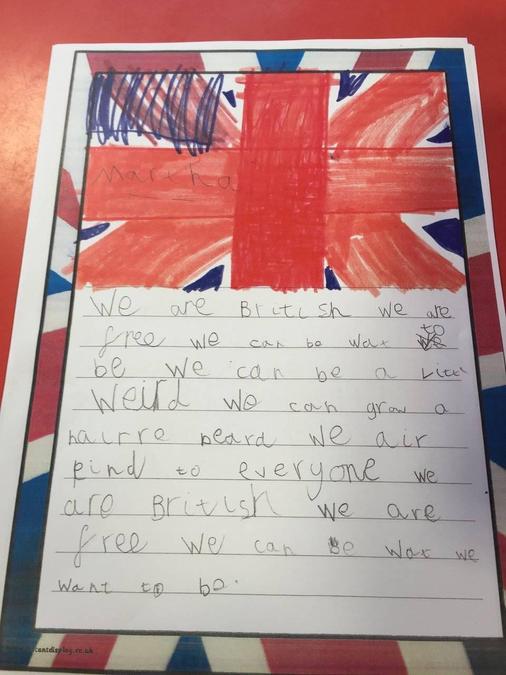 Martha
We are British We are
free we can be wat to
be We can be a Litt
Weird We can grow a
hairre beard We air
kind to everyone we
are British We are
free We can be wat we
want to be.